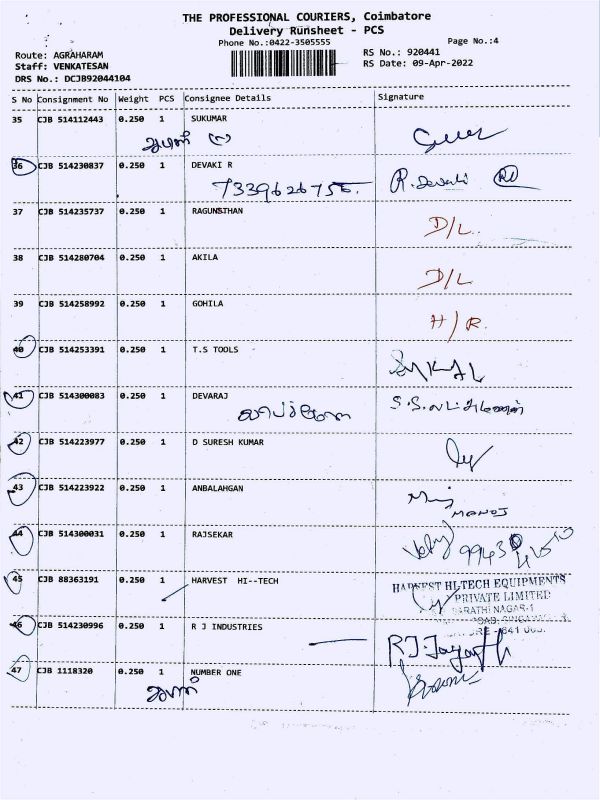 THE PROFESSIONAL COURIERS, Coimbatore
Delivery Runsheet - PCS
Phone No.:0422-3505555
Page No.:4
Route: AGRAHARAM
Staff: VENKATESAN
DRS No.: DCJB92044104
RS No.: 920441
RS Date: 09-Apr-2022
S No Consignment No Weight PCS Consignee Details Signature
35 CJB 514112443 0.250 1 SUKUMAR
36 CJB 514230837 0.250 1 DEVAKI R
7339626756. R. Devaki
37 CJB 514235737 0.250 1 RAGUNSTHAN
D/L.
38 CJB 514280704 0.250 1 AKILA
D/L
39 CJB 514258992 0.250 1 GOHILA
H/R.
40 CJB 514253391 0.250 1 T.S TOOLS
41 CJB 514300083 0.250 1 DEVARAJ
42 CJB 514223977 0.250 1 D SURESH KUMAR
43 CJB 514223922 0.250 1 ANBALAHGAN
MANOJ
44 CJB 514300031 0.250 1 RAJSEKAR
45 CJB 88363191 0.250 1 HARVEST HI--TECH
HARVEST HI-TECH EQUIPMENTS
PRIVATE LIMITED
46 CJB 514230996 0.250 1 R J INDUSTRIES
47 CJB 1118320 0.250 1 NUMBER ONE